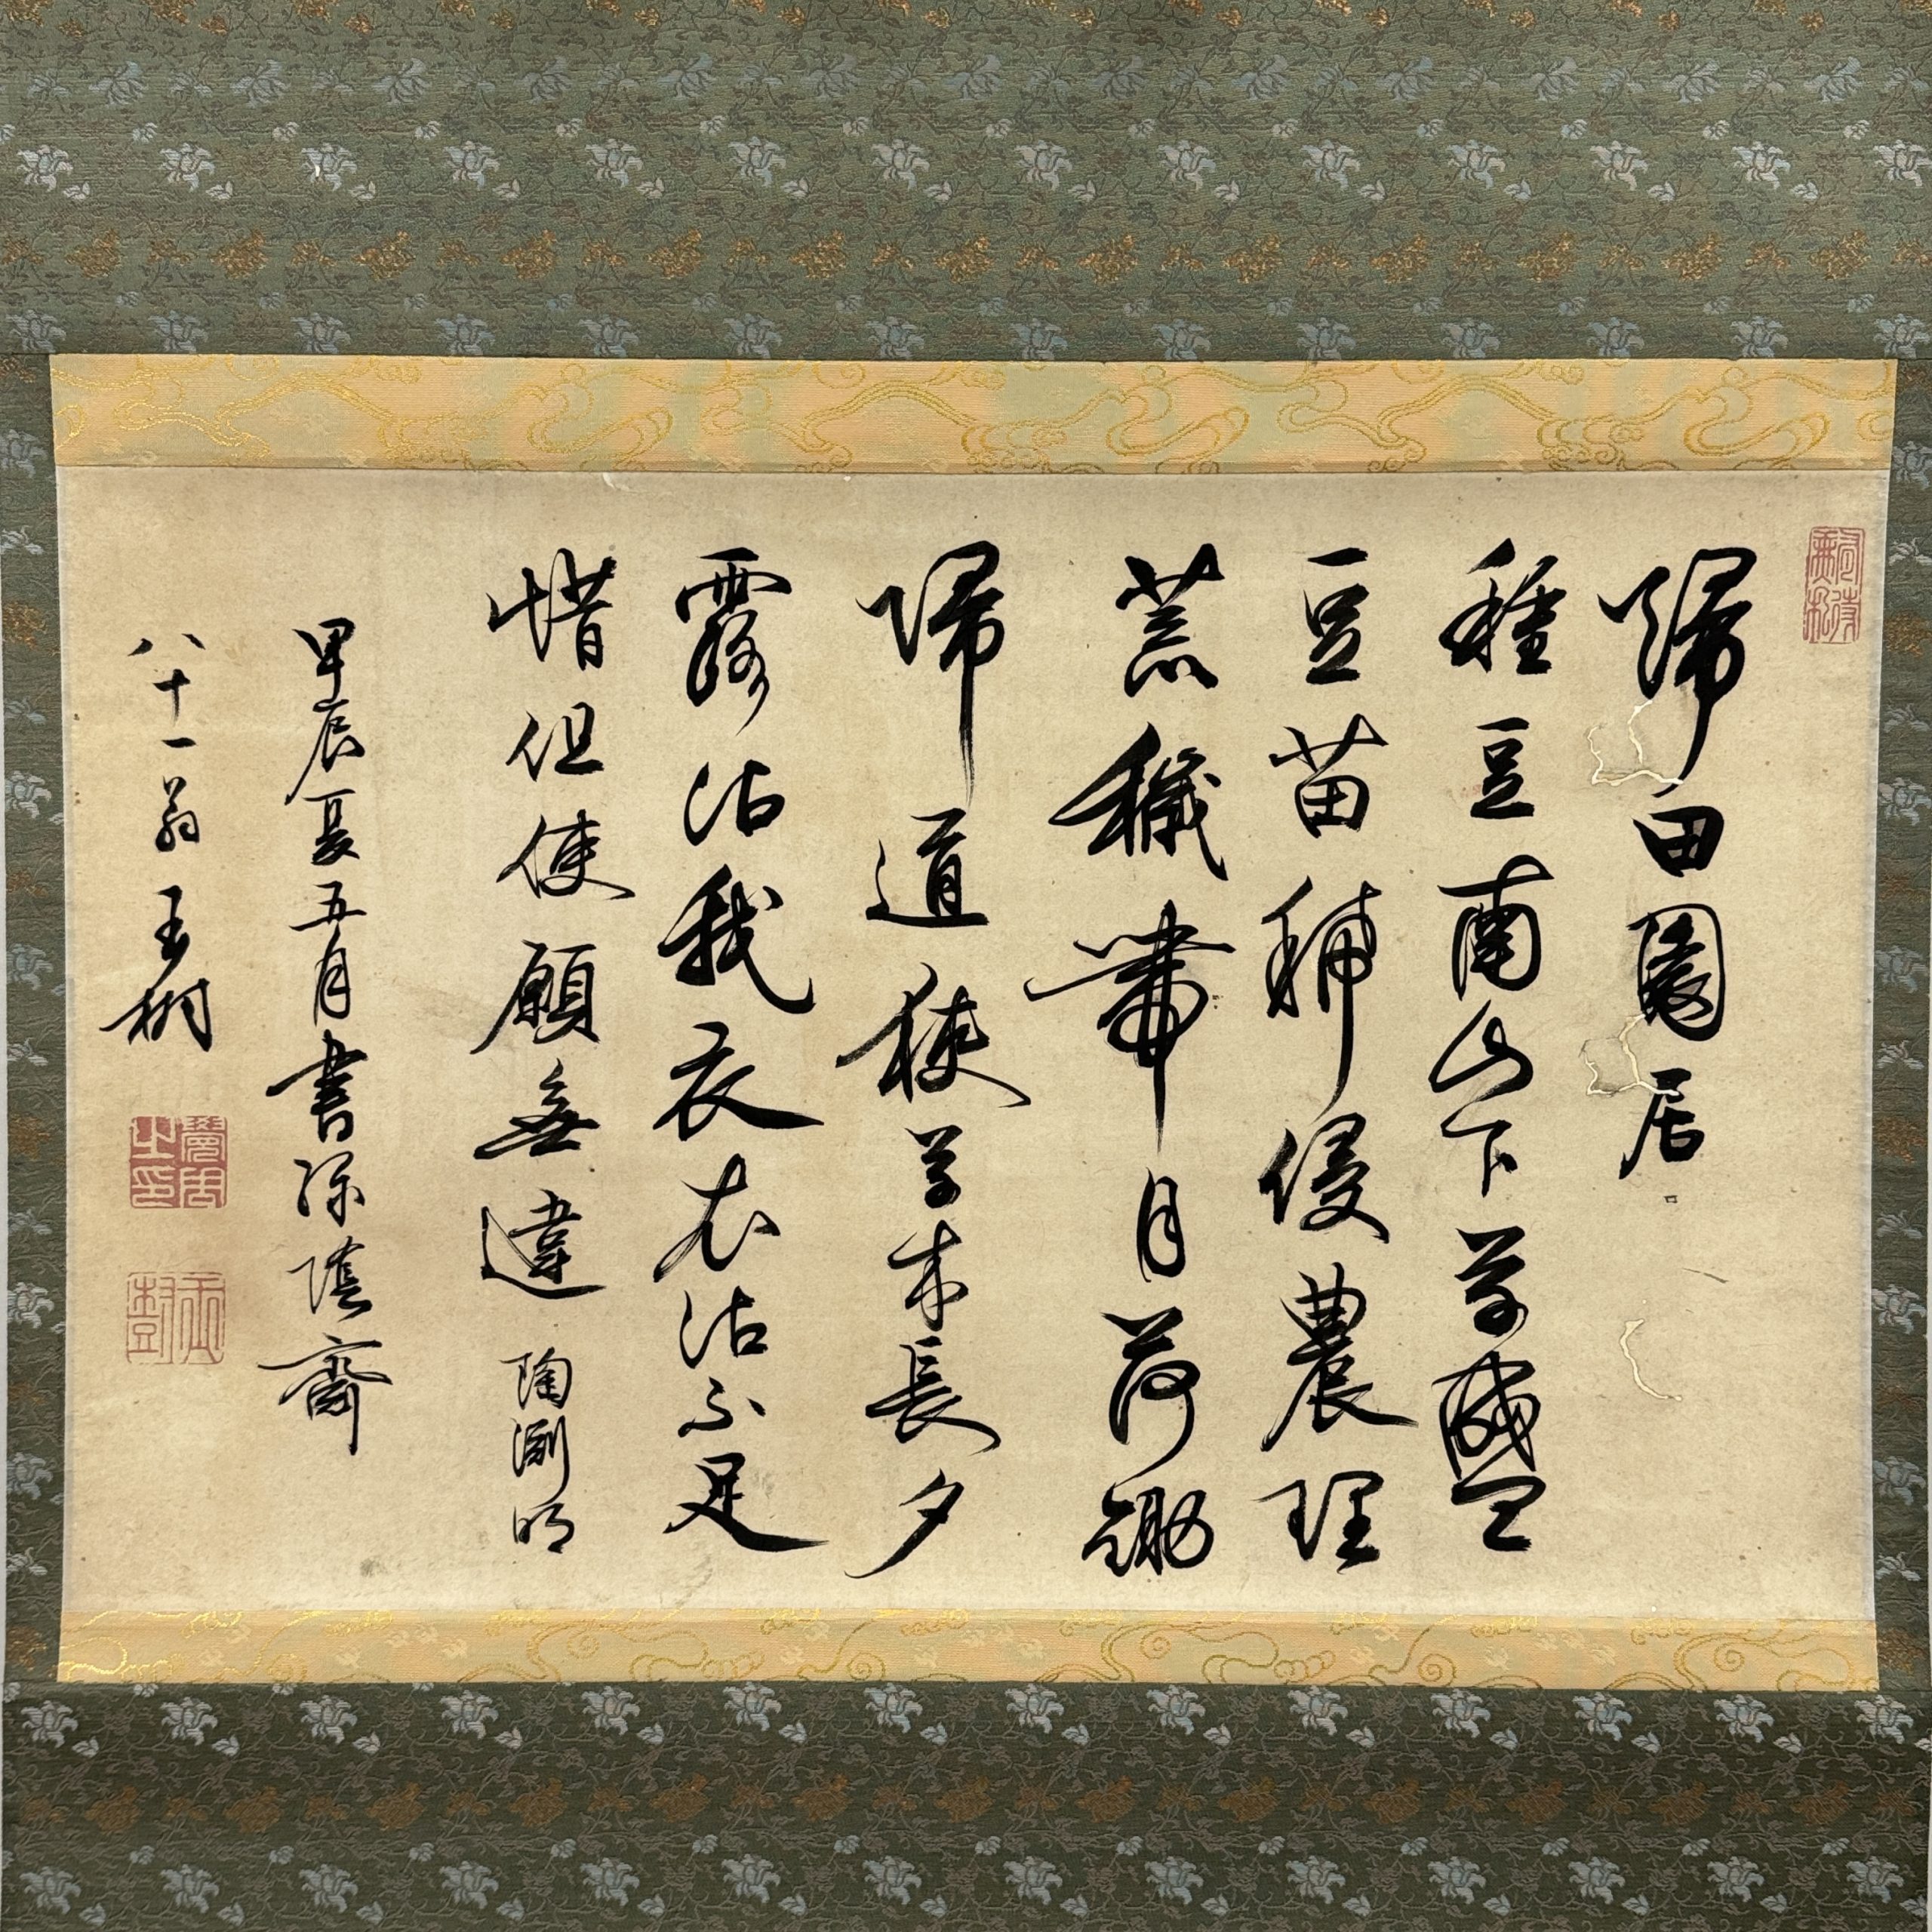 歸田園居
種豆南山下草盛
豆苗稀侵農理
荒穢帶月荷鋤
歸道狹草木長夕
露沾我衣衣沾不足
惜但使願無違 陶淵明
甲辰夏五月書陰齋
八十一翁玉樹
之印
玉樹